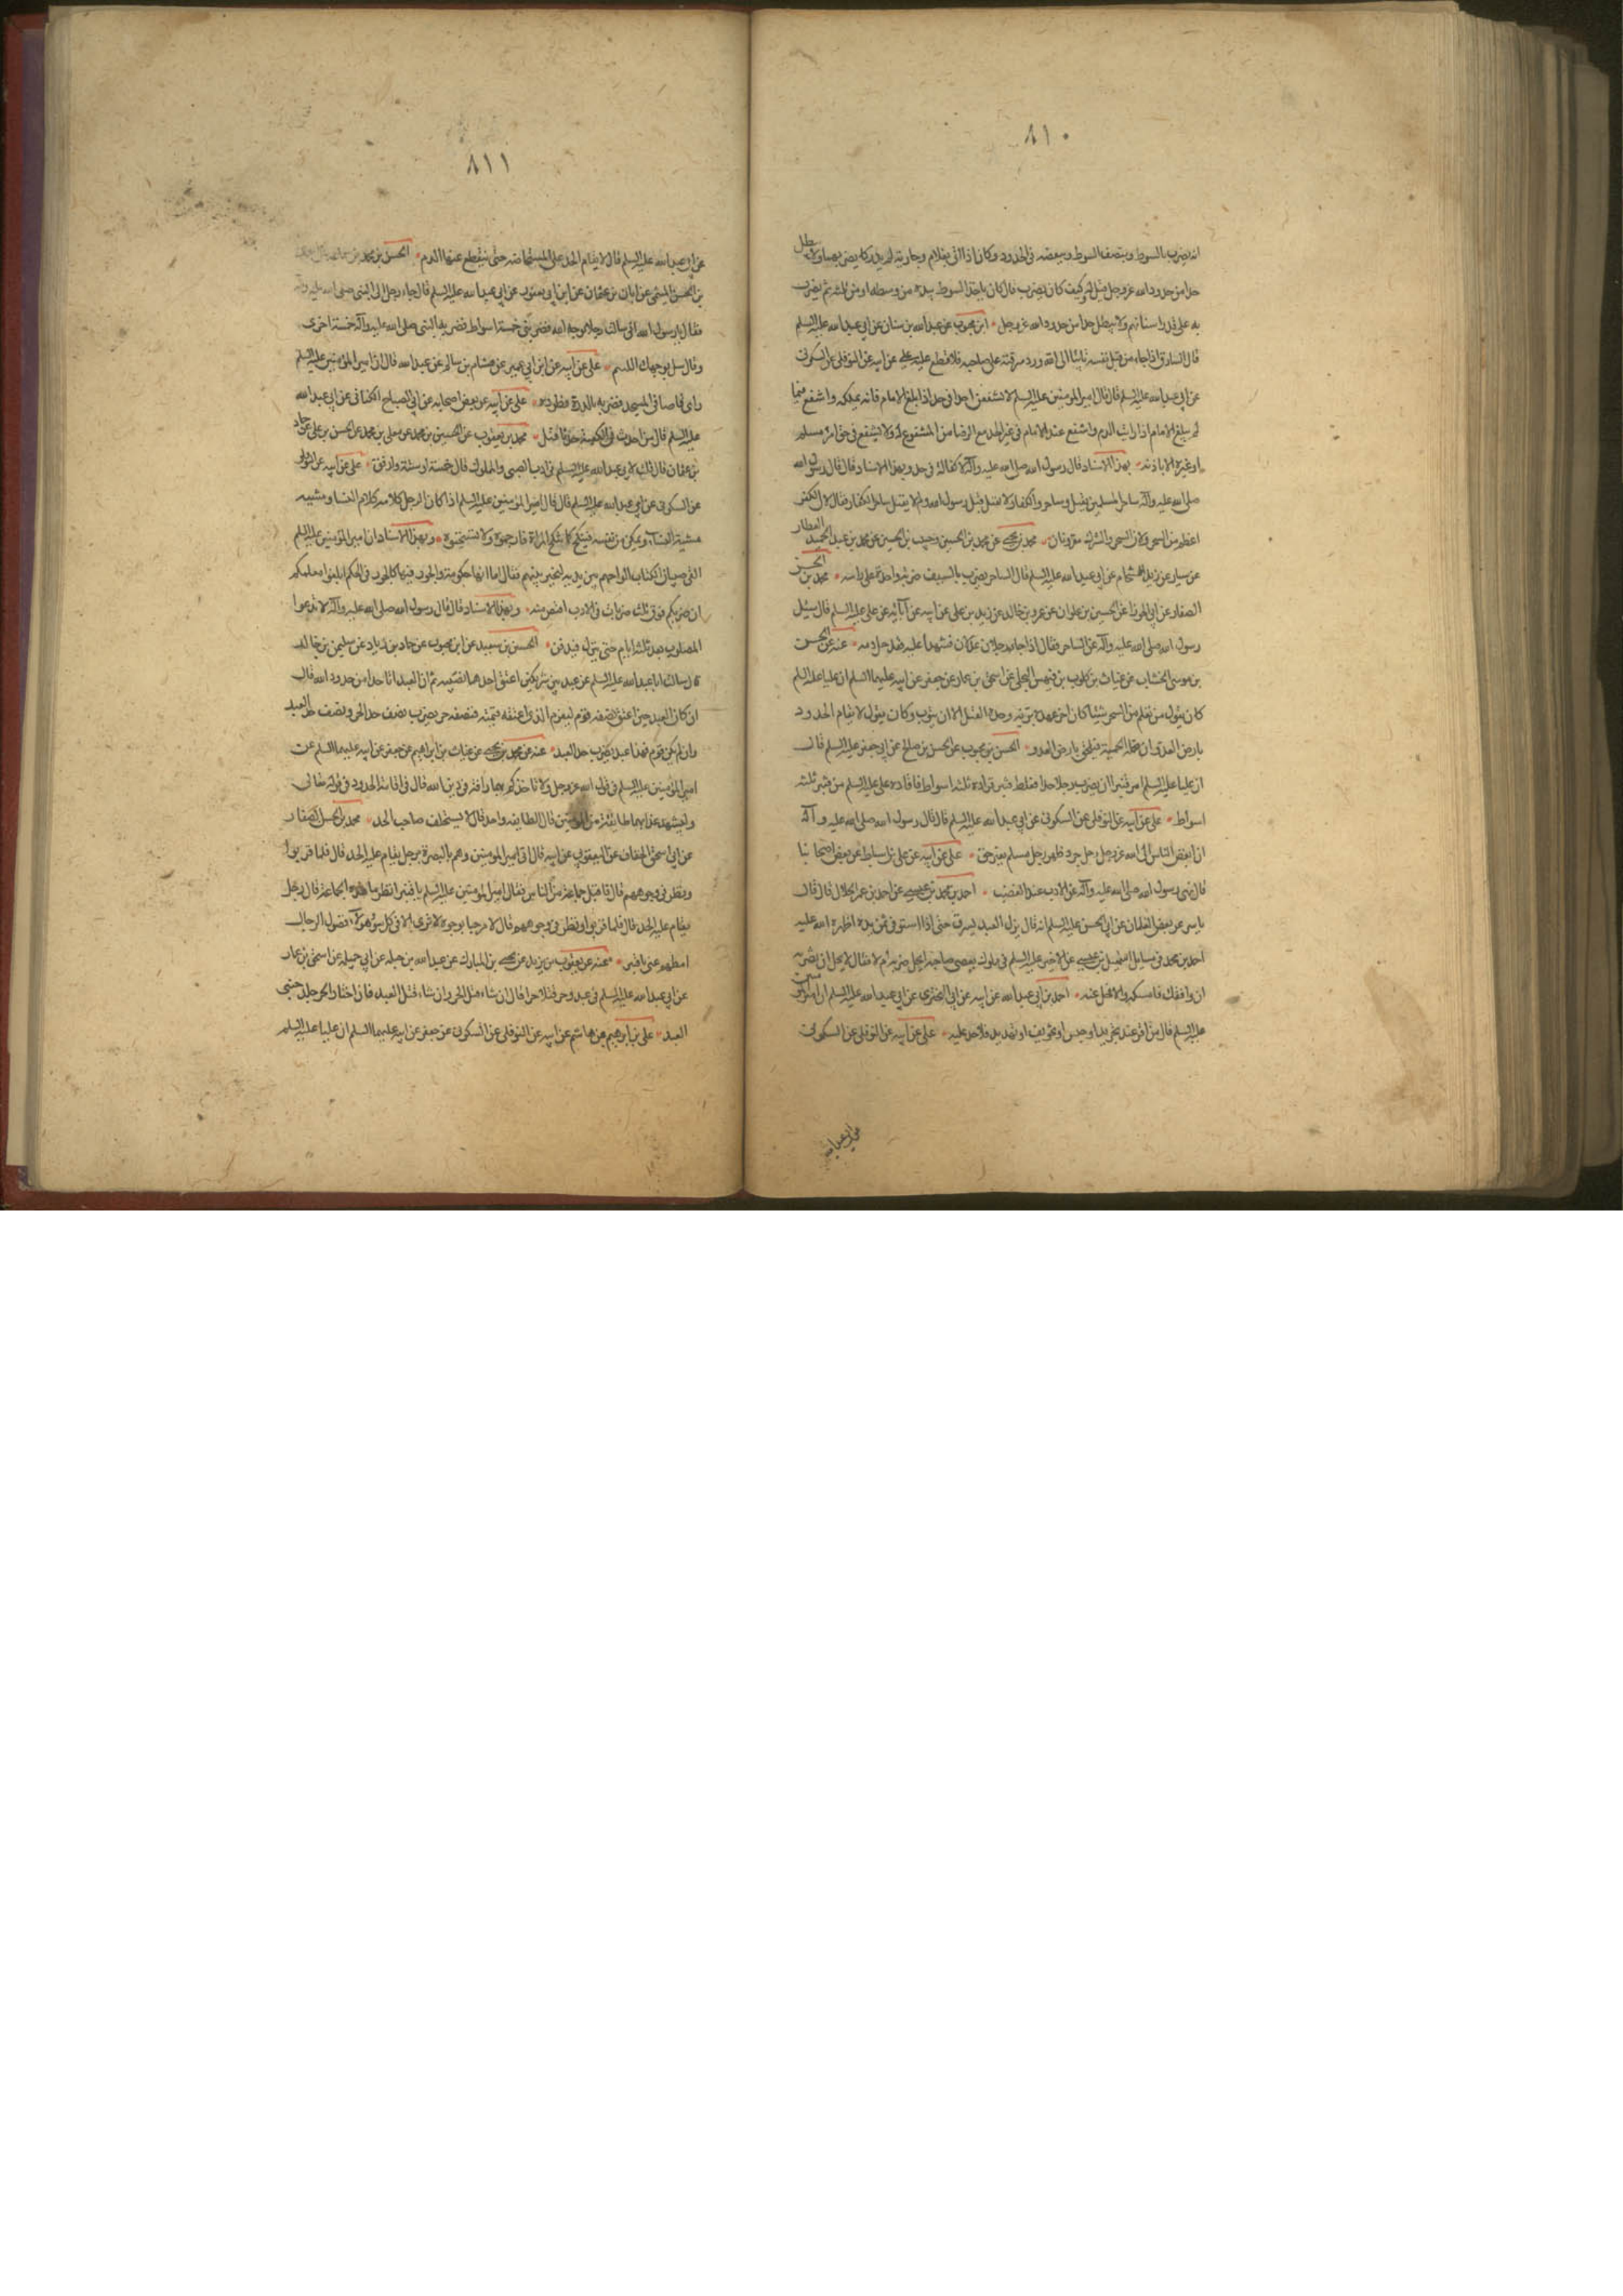 ٨١٠
انه يضرب بالسوط وبنصف السوط وببعضه في الحدود وكان اذا اتي بغلام وجارية لم يدركا يضر بهما ولا يبطل
حدا من حدود الله عز وجل قيل له كيف كان يضرب قال كان ياخذ السوط بيده من وسطه او من ثلثه ثم يضرب
به على قدر اسنانهم ولا يبطل حدا من حدود الله عز وجل ابن محبوب عن عبد الله بن سنان عن ابي عبد الله عليه السلم
قال السارق اذا جاء من قبل نفسه تائبا الى الله ورد سرقته على صاحبها فلا قطع عليه علي عن ابيه عن النوفلي عن السكوني
عن ابي عبد الله عليه السلم قال قال امير المؤمنين عليه السلم لا تشفعن احدا في حد اذا بلغ الامام فانه يملكه واشفع فيما
لم يبلغ الامام اذا رايت الندم واشفع عند الامام في غير الحد مع الرضا من المشفوع له ولا تشفع في حق امرئ مسلم
او غيره الا باذنه بهذا الاسناد قال رسول الله صلى الله عليه وآله لا كفالة في حد وبهذا الاسناد قال قال رسول الله
صلى الله عليه وآله ساحر المسلمين يقتل وساحر الكفار لا يقتل قيل رسول الله ولم لا يقتل ساحر الكفار فقال لان الكفر
اعظم من السحر ولان السحر والشرك مقرونان محمد بن يحيى عن محمد بن الحسين وحبيب بن الحسين عن محمد بن عبد الحميد العطار
عن سيار عن زيد الشحام عن ابي عبد الله عليه السلم قال الساحر يضرب بالسيف ضربة واحدة على راسه محمد بن الحسن
الصفار عن ابي الجوزا عن الحسين بن علوان عن عمرو بن خالد عن زيد بن علي عن ابيه عن آبائه عن علي عليه السلم قال سئل
رسول الله صلى الله عليه وآله عن الساحر فقال اذا جاء رجلان عدلان فشهدا عليه فقد حل دمه عنه عن الحسن
بن موسى الخشاب عن غياث بن كلوب بن فيهس البجلي عن اسحق بن عمار عن جعفر عن ابيه عليهما السلم ان عليا عليه السلم
كان يقول من تعلم من السحر شيئا كان اخر عهده بربه وحده القتل الا ان يتوب وكان يقول لا يقام الحدود
بارض العدو ان تحمله الحمية فيلحق بارض العدو الحسن بن محبوب عن الحسن بن صالح عن ابي جعفر عليه السلم قال
ان عليا عليه السلم امر قنبرا ان يضرب رجلا حدا فغلط قنبر فزاده ثلثة اسواط فاقاده علي عليه السلم من قنبر ثلثة
اسواط علي عن ابيه عن النوفلي عن السكوني عن ابي عبد الله عليه السلم قال قال رسول الله صلى الله عليه وآله
ان ابغض الناس الى الله عز وجل رجل جرد ظهر رجل مسلم بغير حق علي عن ابيه عن علي بن اسباط عن بعض اصحابنا
قال نهى رسول الله صلى الله عليه وآله عن الادب عند الغضب احمد بن محمد بن عيسى عن احمد بن عمر الحلال قال قال
ياسر عن بعض الغلمان عن ابي الحسن عليه السلم انه قال لا يزال العبد يسرق حتى اذا استوفى ثمن يده اظهره الله عليه
احمد بن محمد في مسايل اسمعيل بن عيسى عن الاخير عليه السلم في مملوك يعصي صاحبه ايحل ضربه ام لا فقال لا يحل ان تضربه
ان وافقك فامسكه والا فخل عنه احمد بن ابي عبد الله عن ابيه عن ابي البختري عن ابي عبد الله عليه السلم ان امير المؤمنين
عليه السلم قال من اقر عند تجريد او حبس او تخويف او تهديد فلا حد عليه علي عن ابيه عن النوفلي عن السكوني
عن ابي عبد الله
٨١١
عن ابي عبد الله عليه السلم قال لا يقام الحد على المستحاضة حتى ينقطع عنها الدم الحسن بن محمد بن سماعة
بن الحسن الميثمي عن ابان بن عثمان عن ابن ابي يعفور عن ابي عبد الله عليه السلم قال جاء رجل الى النبي صلى الله عليه وآله
فقال يا رسول الله اني سالت رجلا بوجه الله فضربني خمسة اسواط فضربه النبي صلى الله عليه وآله خمسة اخرى
وقال سل بوجهك اللئيم علي عن ابيه عن ابن ابي عمير عن هشام بن سالم عن عبد الله قال ان امير المؤمنين عليه السلم
راى قاصا في المسجد فضربه بالدرة وطرده علي عن ابيه عن بعض اصحابه عن ابي الصباح الكناني عن ابي عبد الله
عليه السلم قال من احدث في الكعبة حدثا قتل محمد بن يعقوب عن الحسين بن محمد عن معلى بن محمد عن الحسن بن علي عن حماد
بن عثمان قال قلت لابي عبد الله عليه السلم في ادب الصبي والمملوك قال خمسة او ستة وارفق علي عن ابيه عن النوفلي
عن السكوني عن ابي عبد الله عليه السلم قال قال امير المؤمنين عليه السلم اذا كان الرجل كلامه كلام النساء ومشيه
مشية النساء ويمكن من نفسه فينكح كما تنكح المراة فارجموه ولا تستحيوه وبهذا الاسناد ان امير المؤمنين عليه السلم
القى صبيان الكتاب الواحهم بين يديه ليخير بينهم فقال اما انها حكومة والجور فيها كالجور في الحكم ابلغوا معلمكم
ان ضربكم فوق ثلث ضربات في الادب اقتص منه وبهذا الاسناد قال قال رسول الله صلى الله عليه وآله لا تدعوا
المصلوب بعد ثلثة ايام حتى ينزل فيدفن الحسين بن سعيد عن ابن محبوب عن حماد بن زياد عن سليمن بن خالد
قال سالت ابا عبد الله عليه السلم عن عبد بين شريكين اعتق احدهما نصيبه ثم ان العبد اتى حدا من حدود الله قال
ان كان العبد حين اعتق نصفه قوم ليغرم الذي اعتقه قيمته فنصفه حر يضرب نصف حد الحر ونصف حد العبد
وان لم يكن قوم فهذا عبد يضرب حد العبد عنه عن محمد بن يحيى عن غياث بن ابراهيم عن جعفر عن ابيه عليهما السلم عن
امير المؤمنين عليه السلم في قول الله عز وجل ولا تاخذكم بهما رافة في دين الله قال في اقامة الحدود وفي قوله تعالى
وليشهد عذابهما طائفة من المؤمنين قال الطايفة واحد وقال لا يستحلف صاحب الحد محمد بن الحسن الصفار
عن ابي اسحق الخفاف عن اليعقوبي عن ابيه قال اتي امير المؤمنين وهو بالبصرة برجل يقام عليه الحد قال فلما قربوا
ونظر في وجوههم قال فاقبل جماعة من الناس فقال امير المؤمنين عليه السلم يا قنبر انظر ما هذه الجماعة قال رجل
يقام عليه الحد قال فلما قربوا ونظر في وجوههم قال لا مرحبا بوجوه لا ترى الا في كل سوء هؤلاء فضول الرجال
امطهم عني يا قنبر عنه عن يعقوب بن يزيد عن يحيى بن المبارك عن عبد الله بن جبلة عن ابي جميلة عن اسحق بن عمار
عن ابي عبد الله عليه السلم في عبد وحر قتلا حرا قال ان شاء قتل الحر وان شاء قتل العبد فان اختار الحر جلد جنبي
العبد علي بن ابرهيم بن هاشم عن ابيه عن النوفلي عن السكوني عن جعفر عن ابيه عليهما السلم ان عليا عليه السلم